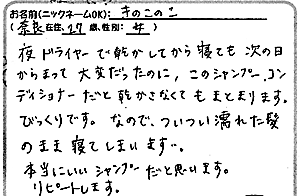 お名前(ニックネームOK): きのこのこ
(奈良在住,27歳,性別: 女)
夜ドライヤーで乾かしてから寝ても次の日
からまって大変だったのに、このシャンプー,コン
ディショナーだと乾かさなくてもまとまります。
びっくりです。なので、ついつい濡れた髪
のまま寝てしまいます…。
本当にいいシャンプーだと思います。
リピートします。